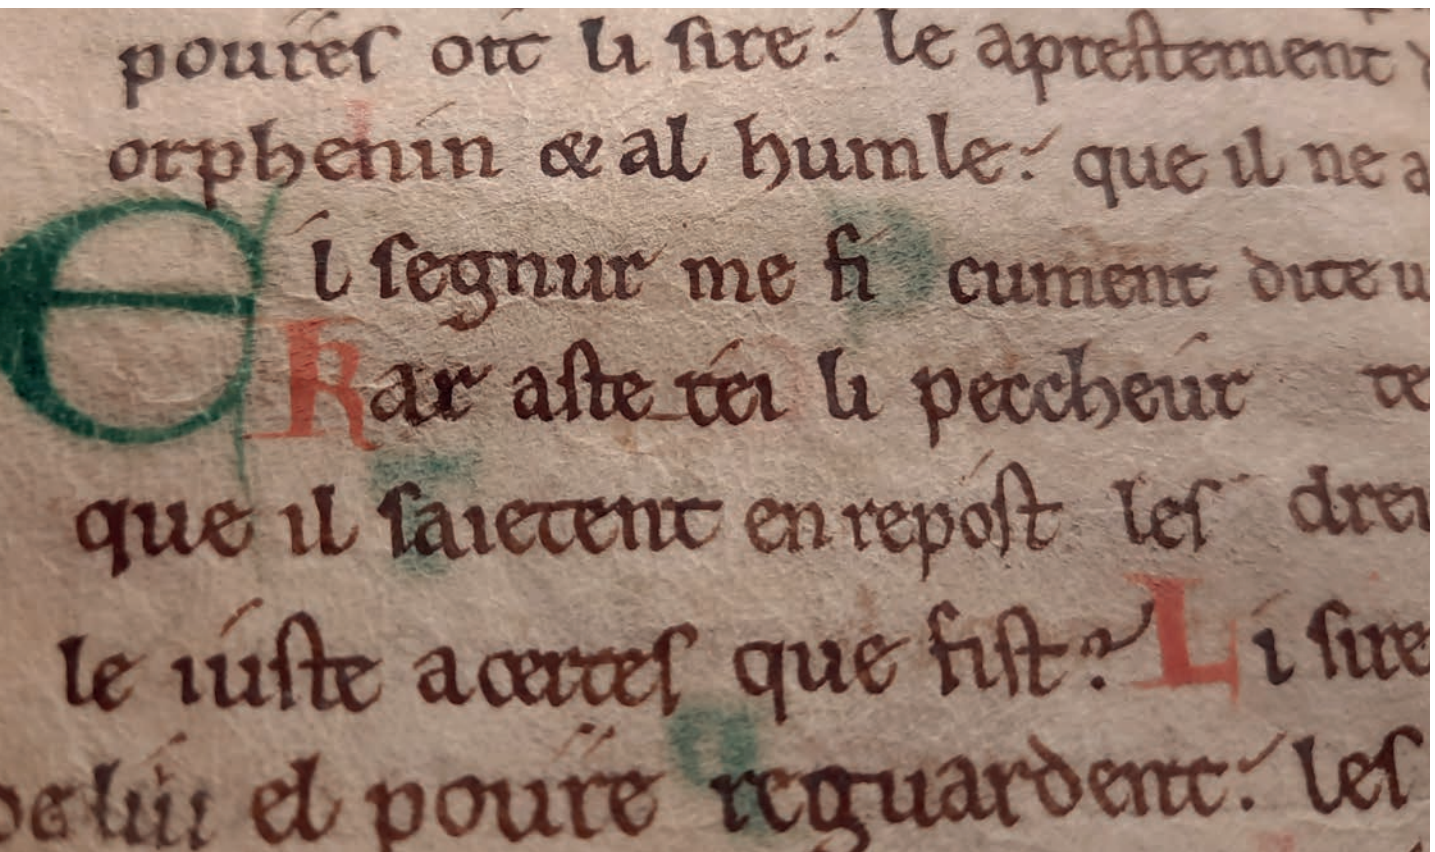 poures oit li sire: le aprestement
orphenin & al humle: que il ne
El segnur me fi cument dite
Kar aste tei li peccheur
que il saietent en repost les
le iuste acertes que fist? Li sire
el poure reguardent: les